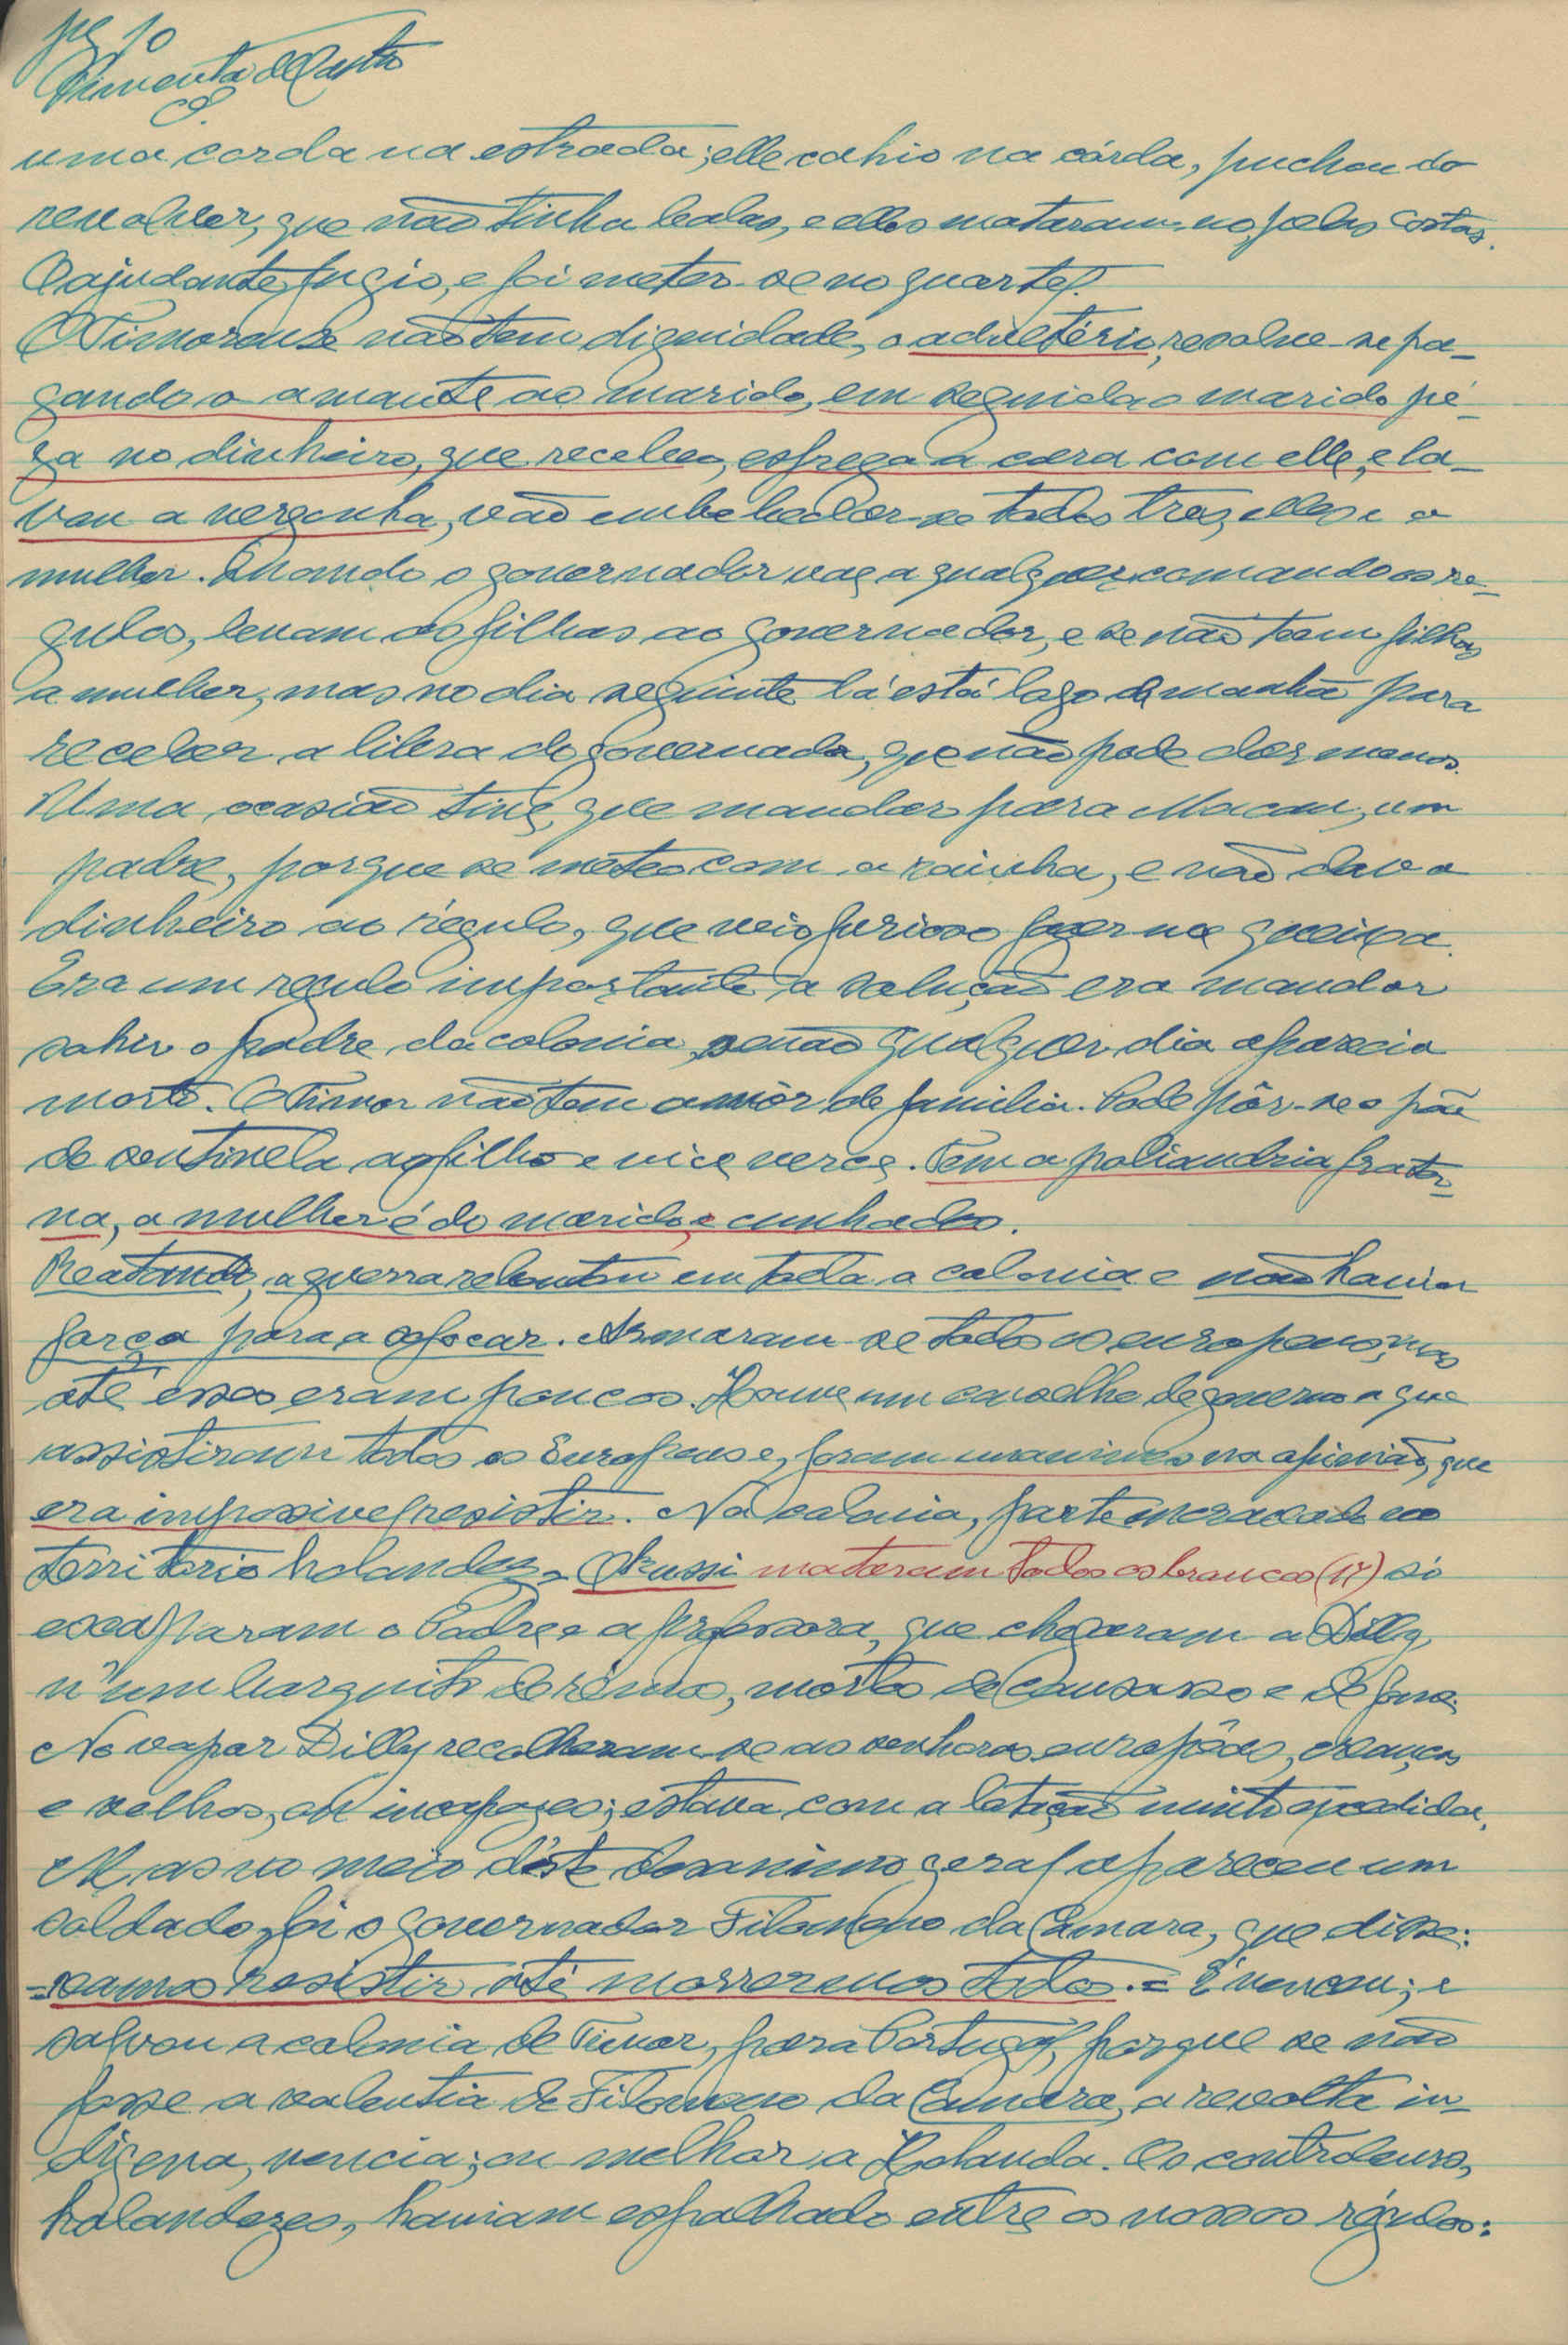 pg 10
Pimenta de Castro
uma corda na estrada; elle cahio na córda, puchou do
revolver, que não tinha balas, e elles mataram-no, pelas costas.
O ajudante fugio, e foi meter-se no quartel.
O Timorense não tem dignidade, o adultério, resolve-se pa-
gando o amante ao marido, em seguida o marido pé-
ga no dinheiro, que recebeo, esfrega a cara com elle, e la-
vou a vergonha, vão embebedar-se todos tres, elles e a
mulher. Quando o governador vae a qualquer comando os re-
gulos, levam as filhas ao governador, e se não teem filhas
a mulher, mas no dia seguinte lá está logo de manhã para
receber a libra do governador, que não pode dar menos.
Uma ocasião tive, que mandar para Macau, um
padre, porque se meteo com a rainha, e não dava
dinheiro ao régulo, que veio furioso fazer-me queixa.
Era um regulo importante a solução era mandar
sahir o padre da colonia, senão qualquer dia aparecia
morto. O Timor não tem amôr de familia. Pode pôr-se o páe
de sentinela ao filho e vice versa. Tem a poliandria frater-
na, a mulher é do marido, e cunhados.
Reatando, a guerra rebentou em toda a colonia e não havia
força para a sofocar. Armaram-se todos os europeus, mas
até esses eram poucos. Houve um conselho de governo a que
assistiram todos os Europeus e, foram unanimes na opinião, que
era impossivel resistir. Na colonia, parte encravada no
territorio holandez, Okussi mataram todos os brancos (17) só
escaparam o Padre e a professora, que chegaram a Dilly,
n'um barquito de rêmos, mortos de cansasso e de fome.
No vapor Dilly recolheram-se as senhoras europêas, creanças
e velhos, ou incapazes; estava com a lotação muito excedida.
Mas no meio déste desanimo geral apareceu um
soldado, foi o governador Filomeno da Camara, que disse:
=vamos resistir até morrermos todos.= E venceu; e
salvou a colonia de Timor, para Portugal, porque se não
fosse a valentia de Filomeno da Camara, a revolta in-
digena, vencia; ou melhor a Holanda. Os controleurs,
holandezes, haviam espalhado entre os nossos régulos: